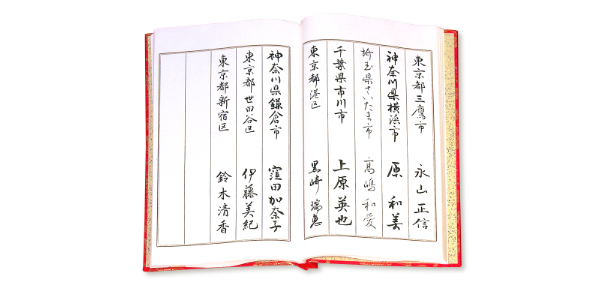 東京都三鷹市 永山正信
神奈川県横浜市 原和美
埼玉県さいたま市 高嶋和愛
千葉県市川市 上原英也
東京都港区 黒崎瑞恵
神奈川県鎌倉市 窪田加奈子
東京都世田谷区 伊藤美紀
東京都新宿区 鈴木清香